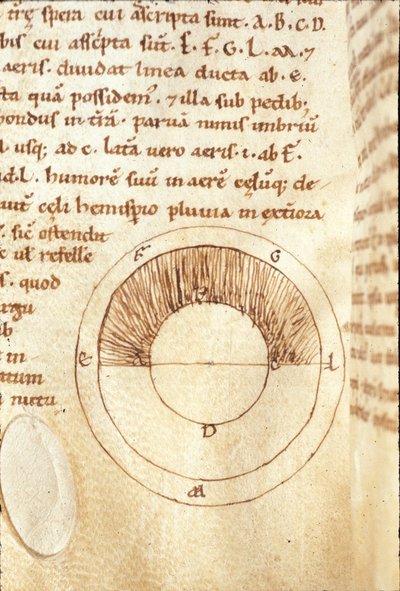 trę spera cui ascripta sunt. A. B. C. D.
bis cui assc̄pta sūt. E. F. G. L. M. ⁊
aeris. diuidat linea ducta ab. e.
ta quā possidemꝰ. ⁊ illa sub pedib;
pondus in trā. paruā nimis imbriū
l usq; ad c. lata uero aeris. i. ab E.
d L. humorē suū in aerē cęlūq; de
uit cęli hemisp̄io pluuia in ext̄iora
. sic ostendit
e ul̄ refelle
s. quod
argu
ib
in
atum
nutu
F G
B
E A C L
D
M